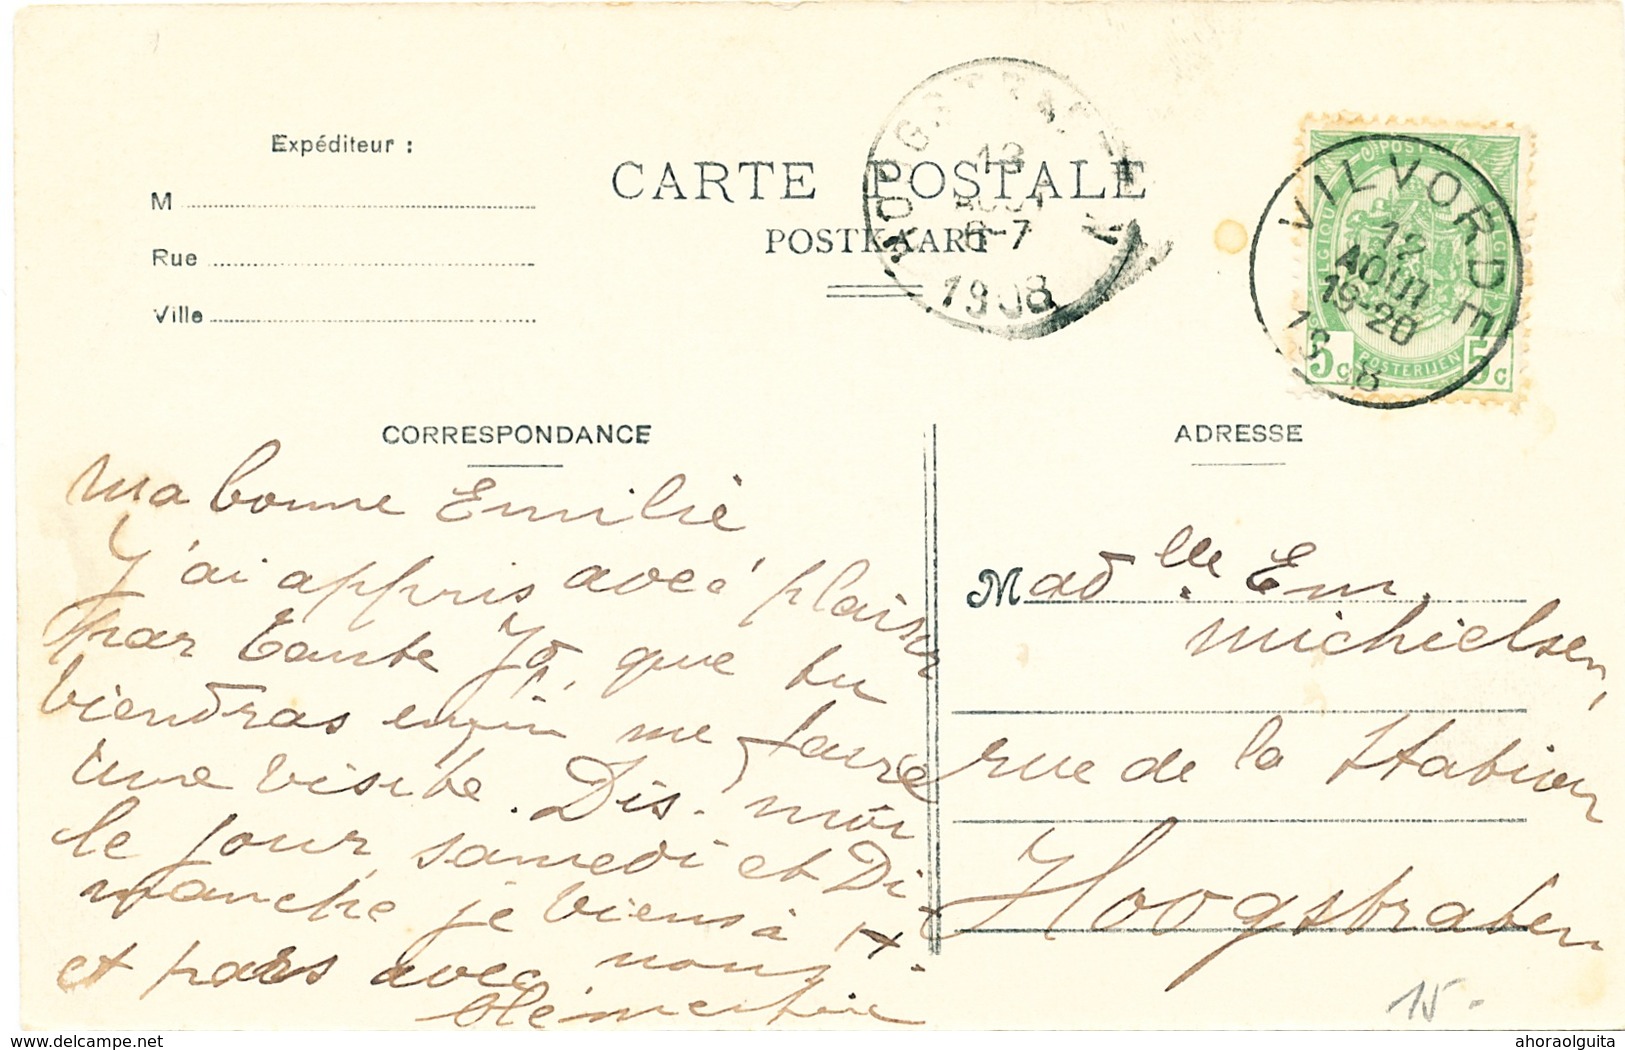 Expéditeur :
M
Rue
Ville
CARTE POSTALE
POSTKAART
HOOGSTRAETEN
13
AOUT
6-7
1908
VILVORDE
12
AOUT
19-20
19 8
POSTES
BELGIQUE
BELGIË
POSTERIJEN
5c 5c
CORRESPONDANCE
Ma bonne Emilie
J'ai appris avec plaisir
par tante Jo, que tu
viendras enfin me faire
une visite. Dis-moi
le jour, samedi et Di
manche je viens à H.
et pars avec nous
Clémentine
ADRESSE
Madlle Em.
Michielsen,
rue de la Station
Hoogstraten
15-
delcampe.net
ahoraolguita